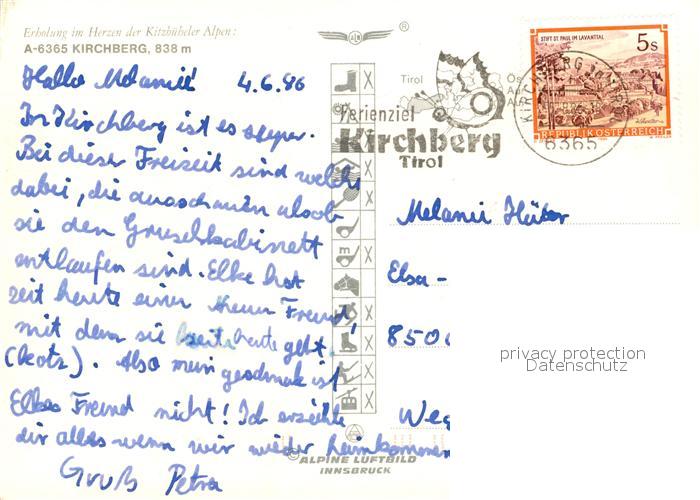 Erholung im Herzen der Kitzbüheler Alpen:
A-6365 KIRCHBERG, 838 m
Hallo Melanie 4.6.86
In Kirchberg ist es super.
Bei dieser Freizeit sind welche
dabei, die ausschauen als ob
sie dem Gruselkabinett
entlaufen sind. Elke hat
seit heute einen neuen Freund
mit dem sie seit heute geht.
(kotz). Also mein geschmak ist
Elkes Freund nicht! Ich erzähle
dir alles wenn wir wieder heimkommen
Gruß Petra
®
Tirol
Ferienziel
Kirchberg
Tirol
KIRCHBERG
6365
STIFT ST. PAUL IM LAVANTTAL
5s
REPUBLIK ÖSTERREICH
Melanie
Elsa-
850
Weg
privacy protection
Datenschutz
ALPINE LUFTBILD
INNSBRUCK